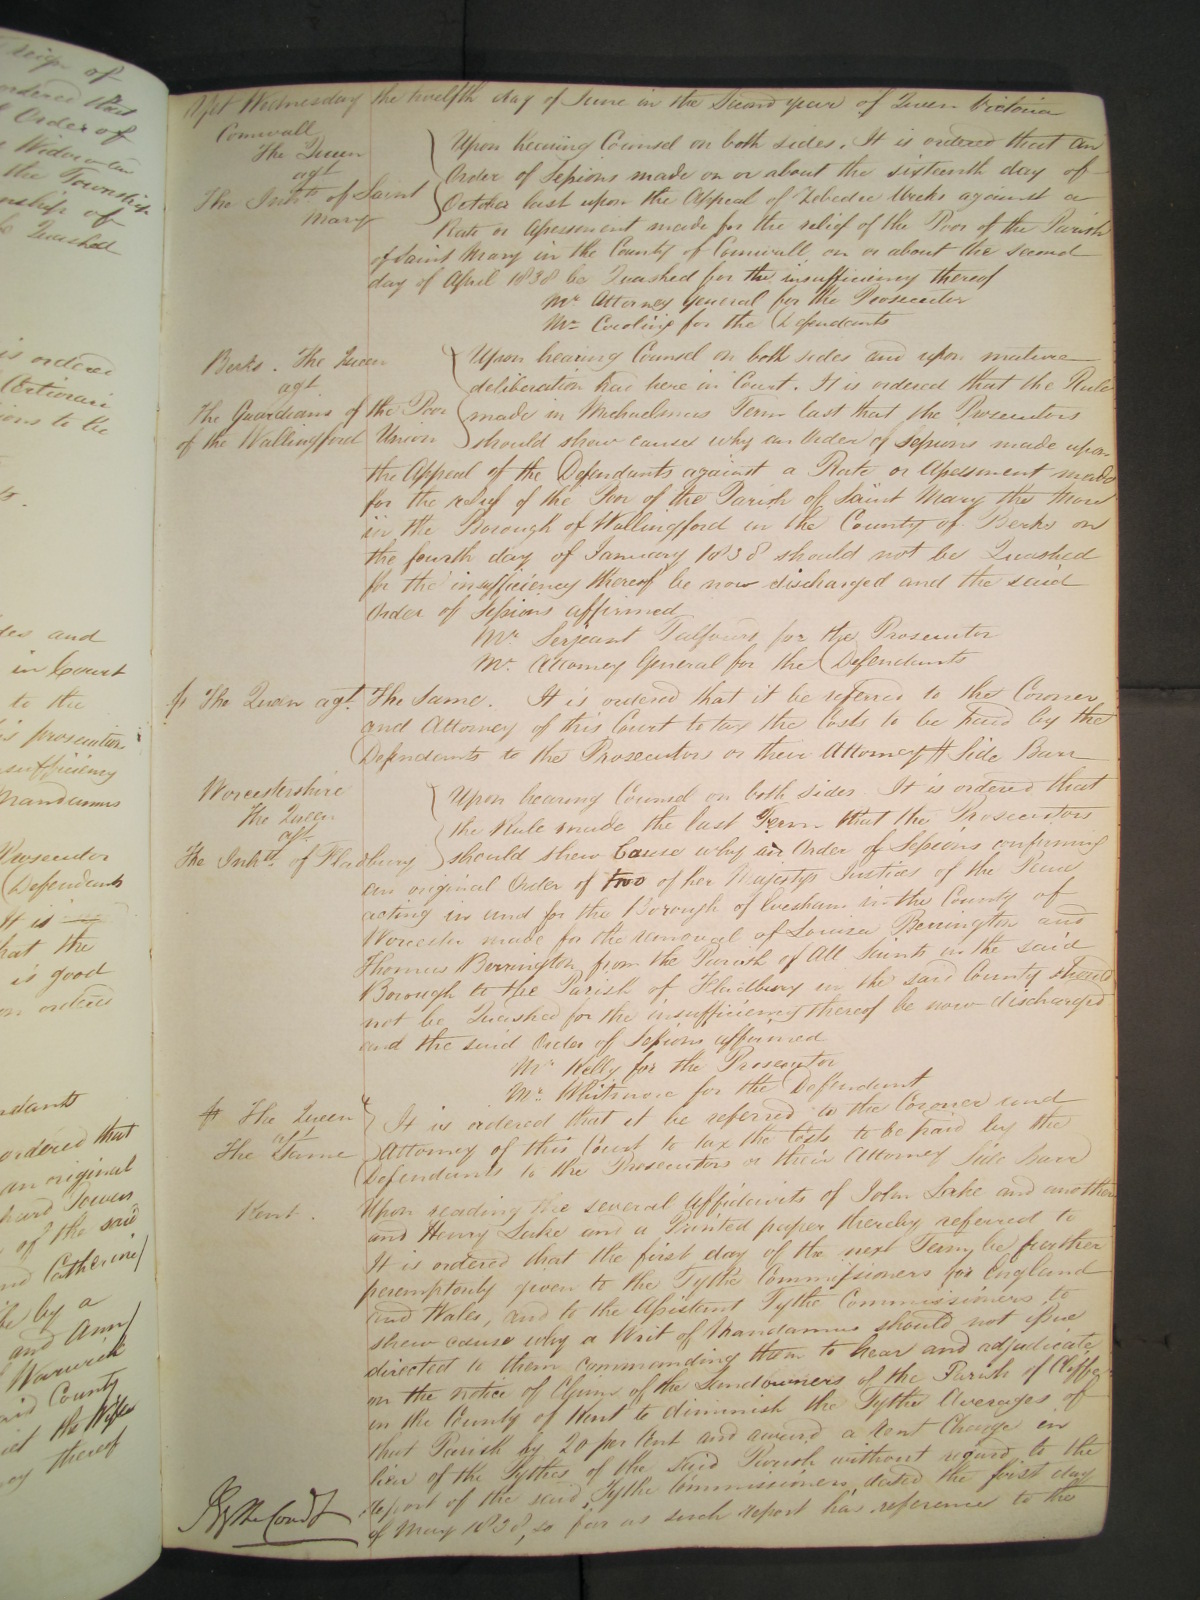 reign of
ordered that
Order of
Widow
the Township
Township of
Quashed
is ordered
Certiorari
to the
and
in Court
to the
prosecution
insufficiency
Mandamus
Prosecutor
Defendants
It is
that the
is good
ordered
Defendants
ordered that
an original
of the said
and Catherine
be by a
and Ann
Warwick
said County
the
thereof
Yet Wednesday the twelfth day of June in the Second year of Queen Victoria
Cornwall
The Queen
agt
The Inhts of Saint
Mary
Upon hearing Counsel on both sides. It is ordered that an
Order of Sessions made on or about the sixteenth day of
October last upon the Appeal of Zebedee against a
Rate or Assessment made for the relief of the Poor of the Parish
of Saint Mary in the County of Cornwall on or about the second
day of April 1838 be Quashed for the insufficiency thereof
Mr Attorney General for the Prosecutor
Mr for the Defendants
Berks. The Queen
agt
The Guardians of the Poor
of the Wallingford Union
Upon hearing Counsel on both sides and upon mature
deliberation had here in Court. It is ordered that the Rule
made in Michaelmas Term last that the Prosecutors
should shew cause why an Order of Sessions made upon
the Appeal of the Defendants against a Rate or Assessment made
for the relief of the Poor of the Parish of Saint Mary the More
in the Borough of Wallingford in the County of Berks on
the fourth day of January 1838 should not be Quashed
for the insufficiency thereof be now discharged and the said
Order of Sessions affirmed
Mr Serjeant Talfourd for the Prosecutor
Mr Attorney General for the Defendants
The Queen agt The Same. It is ordered that it be referred to the Coroner
and Attorney of this Court to tax the Costs to be paid by the
Defendants to the Prosecutors or their Attorney # Side Barr
Worcestershire
The Queen
agt
The Inhts of Fladbury
Upon hearing Counsel on both sides It is ordered that
the Rule made the last Term that the Prosecutors
should shew Cause why an Order of Sessions confirming
an original Order of two of her Majestys Justices of the Peace
acting in and for the Borough of Evesham in the County of
Worcester made for the removal of Louisa Berrington and
Thomas Berrington from the Parish of All Saints in the said
Borough to the Parish of Fladbury in the said County should
not be Quashed for the insufficiency thereof be now discharged
and the said Order of Sessions affirmed
Mr Kelly for the Prosecutor
Mr Whitmore for the Defendant
# The Queen
agt
The Same
It is ordered that it be referred to the Coroner and
Attorney of this Court to tax the Costs to be paid by the
Defendants to the Prosecutors or their Attorney Side barr
Kent.
Upon reading the several affidavits of John Lake and another
and Henry Lake and a Printed paper thereby referred to
It is ordered that the first day of the next Term be further
peremptorily given to the Tythe Commissioners for England
and Wales, and to the Assistant Tythe Commissioners to
shew cause why a Writ of Mandamus should not issue
directed to them commanding them to hear and adjudicate
on the notice of Claim of the Landowners of the Parish of Cliffe
in the County of Kent to diminish the Tythe Averages of
that Parish by 20 per Cent and award a Rent Charge in
lieu of the Tythes of the said Parish without regard to the
report of the said Tythe Commissioners, dated the first day
of May 1838, so far as such report has reference to the
By the Court